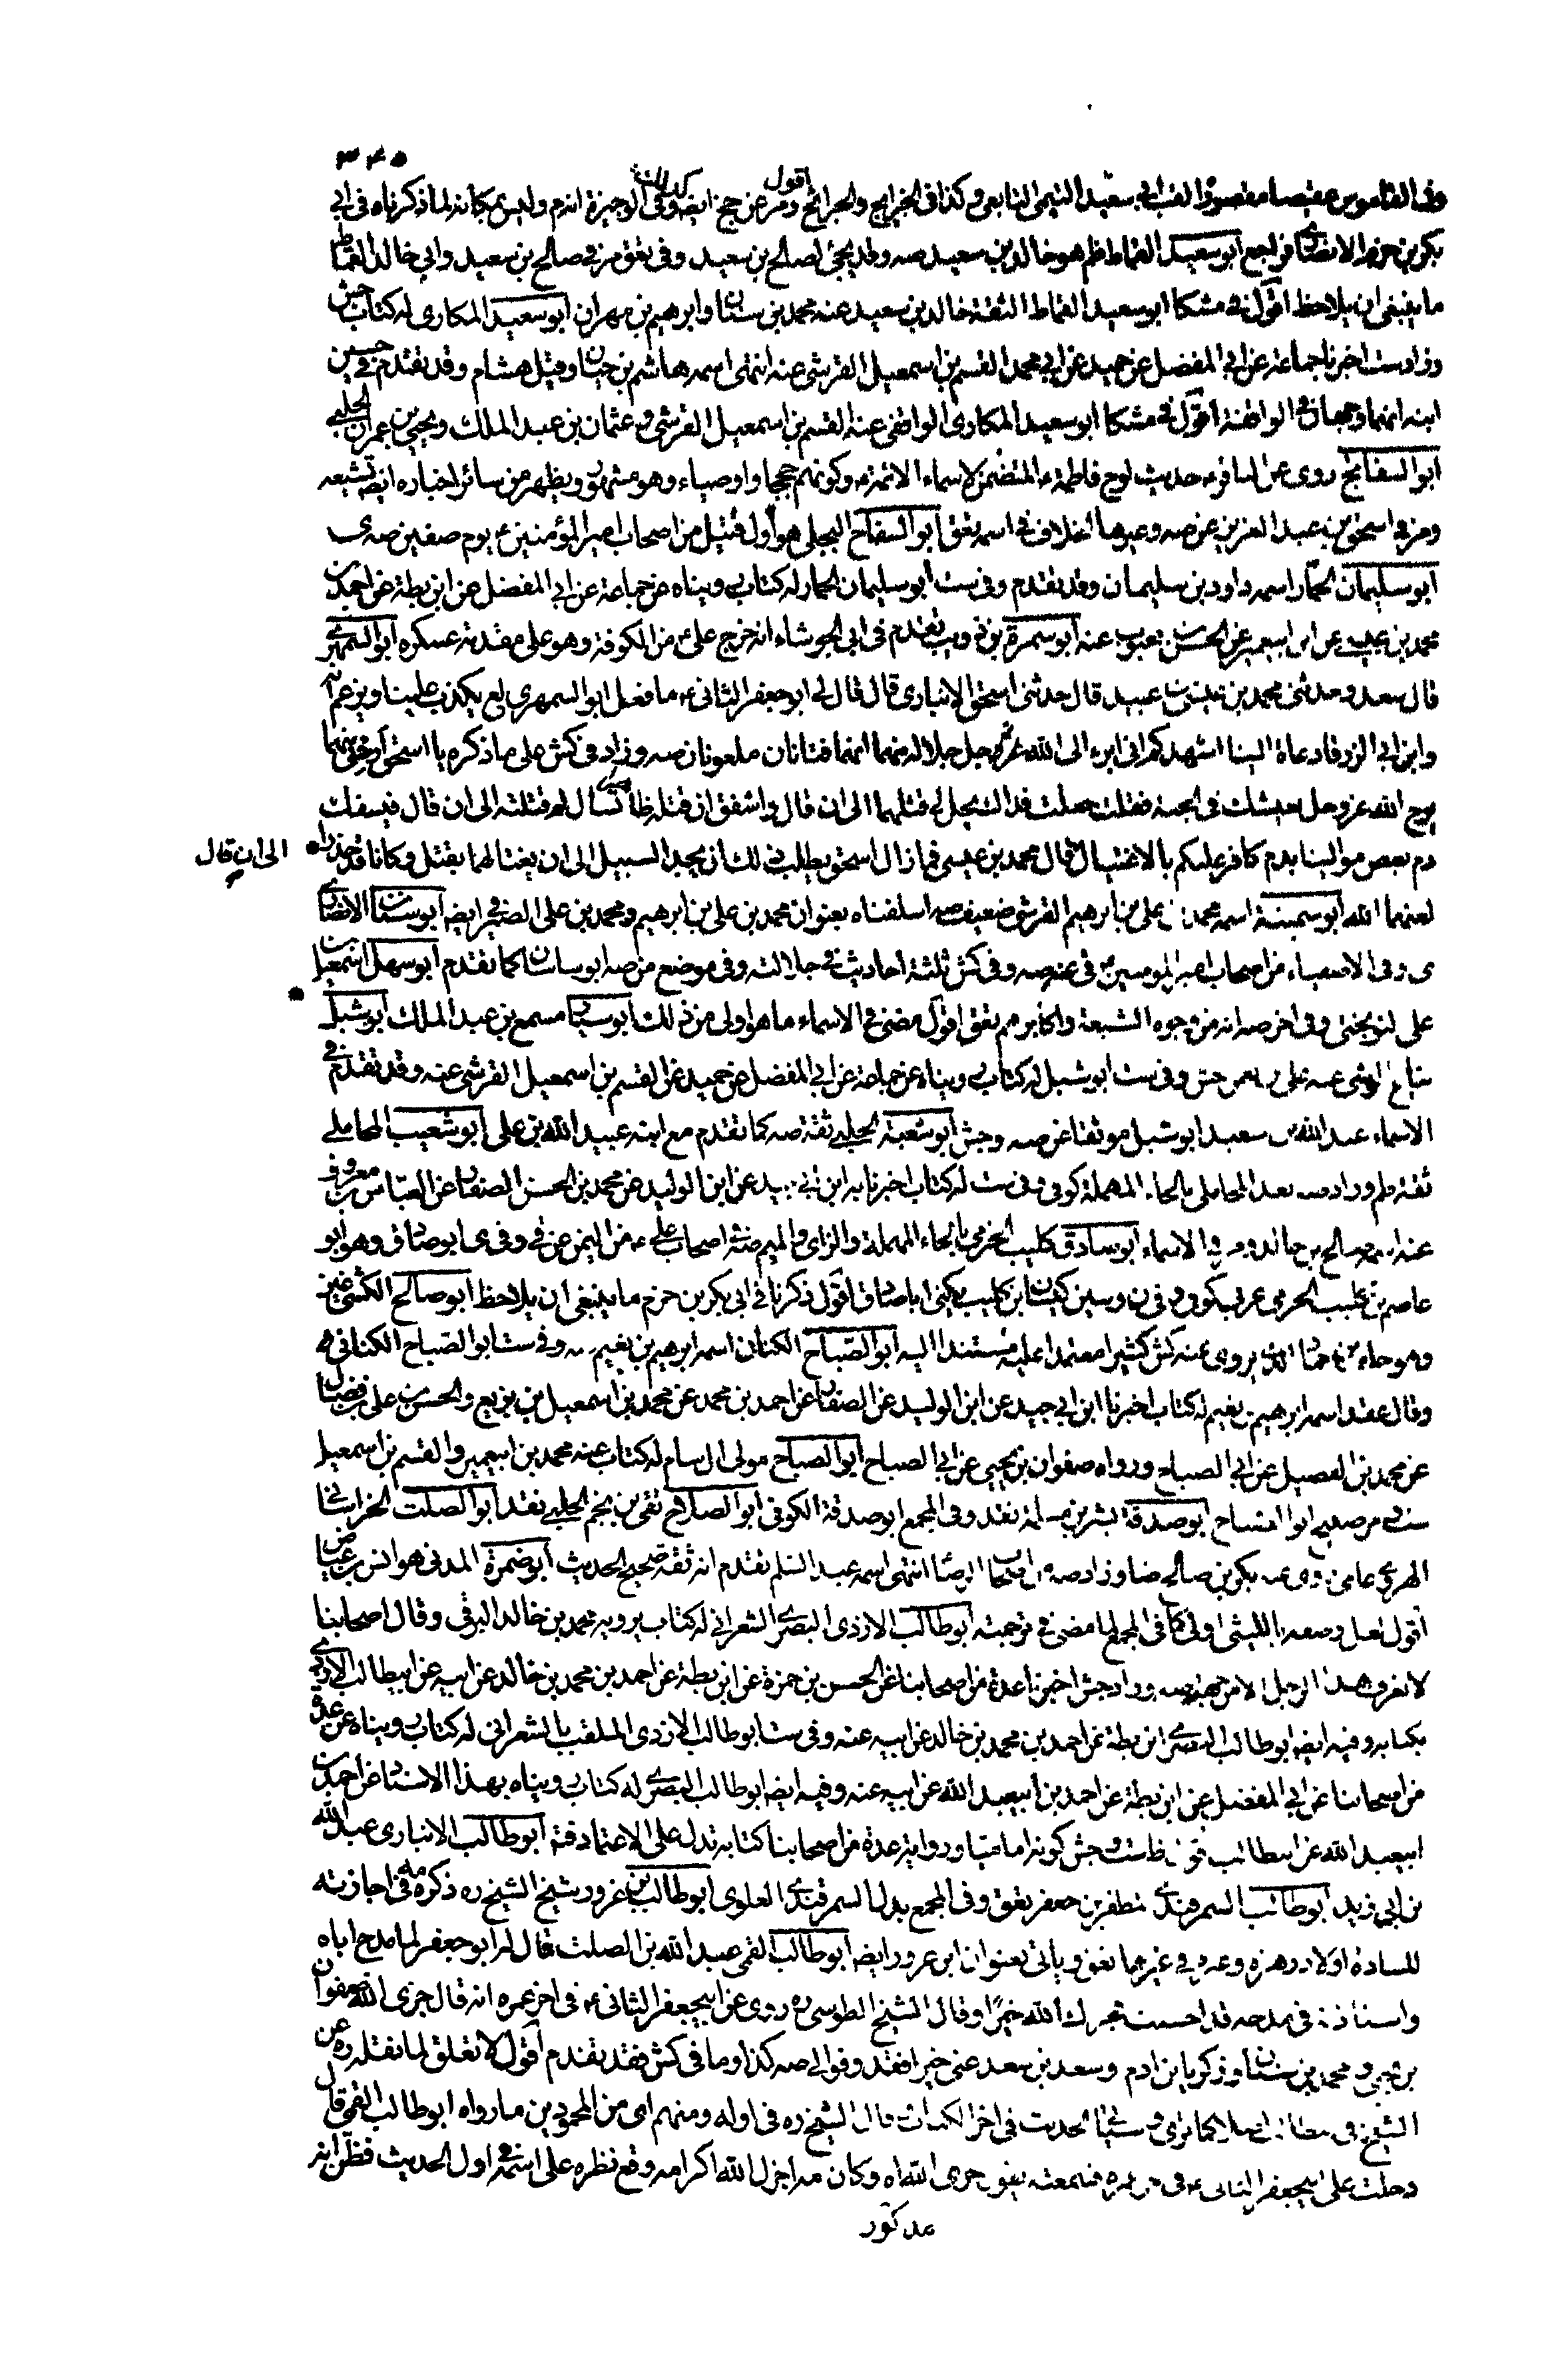 ٣٤٠
وفى القاموس عقيصا مقصورا لقب ابى سعيد التيمى التابعى وكذا فى الخرايج والجرائح ومر عن جخ ايضا وفى الوجيزة انه م وليس بمكانه لما ذكرناه فى ابى
بكر بن حزم الانصارى فراجع ابو سعيد القماط ظم هو خالد بن سعيد صه وقد يجئ لصالح بن سعيد وفى تعق مر فى صالح بن سعيد وابى خالد القماط
ما ينبغى ان يلاحظ اقول فى مشكا ابو سعيد القماط الثقة خالد بن سعيد عنه محمد بن سنان وابرهيم بن مهران ابو سعيد المكارى له كتاب جش
وزاد ست اخبرنا جماعة عن ابى المفضل عن حميد عن ابى محمد القسم بن اسمعيل القرشى عنه انتهى اسمه هاشم بن حيان وقيل هشام وقد تقدم فى حسين
ابنه انهما وجهان فى الواقفة اقول فى مشكا ابو سعيد المكارى الواقفى عنه القسم بن اسمعيل القرشى وعثمان بن عبد الملك ويحيى بن عمران الحلبى
ابو السفاتج روى عن الباقر ع حديث لوح فاطمة ع المتضمن لاسماء الائمة ع وكونهم حججا واوصياء وهو مشهور ويظهر من سائر اخباره ايضا تشيعه
ومر فى اسحق بن عبد العزيز عن صه وغيرها الخلاف فى اسمه تعق ابو السفاح البجلى هو اول قتيل من اصحاب امير المؤمنين ع يوم صفين صه ى
ابو سليمان الحمار اسمه داود بن سليمان وقد تقدم وفى ست ابو سليمان الحمار له كتاب رويناه عن جماعة عن ابى المفضل عن ابن بطة عن احمد بن
محمد بن عيسى عن ابن ابيعمير عن الحسن بن محبوب عنه ابو سمرة بن ذويب تقدم فى ابى الجوشاء انه خرج على ع من الكوفة وهو على مقدمة عسكره ابو السمهرى
قال سعد وحدثنى محمد بن عيسى بن عبيد قال حدثنى اسحق الانبارى قال قال لى ابو جعفر الثانى ع ما فعل ابو السمهرى لع يكذب علينا ويزعم انه
وابن ابى الزرقا دعاة الينا اشهدكم انى ابرء الى الله عز وجل جلاله منهما انهما فتانان ملعونان صه وزاد فى كش على ما ذكره يا اسحق ارحنى منهما
يرح الله عز وجل بعيشك فى الجنة فقلت جعلت فداك يحل لى قتلهما الى ان قال واشفق ان قتلته ظاهرا تسأل لم قتلته الى ان قال فيسفك
دم بعض موالينا بدم كافر عليكم بالاغتيال قال محمد بن عيسى فما زال اسحق يطلب ذلك ان يجد السبيل الى ان يغتالهما بقتل وكانا قد حذراه
الى ان قال
لعنهما الله ابو سمينة اسمه محمد بن على بن ابرهيم القرشى ضعيف صه اسلفناه بعنوان محمد بن على بن ابرهيم ومحمد بن على الصيرفى ايضا ابو سنان الانصارى
ى وفى الاصفياء من اصحاب امير المومنين ع فى عد صه وفى كش ثلثة احاديث فى جلالته وفى موضع من صه ابو ساسان كما تقدم ابو سهل اسمعيل بن
على النوبختى وفى اخر صه انه من وجوه الشيعة واكابرهم تعق اقول مضى فى الاسماء ما هو اولى من ذلك ابو سيار مسمع بن عبد الملك ابو شبل
بياع الوشى عنه على بن النعمن جش وفى ست ابو شبل له كتاب رويناه عن جماعة عن ابى المفضل عن حميد عن القسم بن اسمعيل القرشى عنه وقد تقدم فى
الاسماء عبد الله بن سعيد ابو شبل موثقا عن صه وجش ابو شعبة الحلبى ثقة صه كما تقدم مع ابنه عبيد الله بن على ابو شعيب المحاملى
ثقة ظم وزاد صه بعد المحاملى بالحاء المهملة كوفى وفى ست له كتاب اخبرنا به ابن ابى جيد عن ابن الوليد عن محمد بن الحسن الصفار عن العباس بن معروف
عنه اسمه صالح بن خالد ومر فى الاسماء ابو صادق كليب الحزمى بالحاء المهملة والزاى والميم صه من اصحاب على ع من اليمن عن قى وفى ى ابو صادق وهو ابو
عاصم بن كليب الحرمى عربى كوفى وفى ن وسين كيسان ابن كليب يكنى ابا صادق اقول ذكرنا فى ابى بكر بن حزم ما ينبغى ان يلاحظ ابو صالح الكشى غير
وقال عقد اسمه ابرهيم بن نعيم له كتاب اخبرنا ابن ابى جيد عن ابن الوليد عن الصفار عن احمد بن محمد عن محمد بن اسمعيل بن بزيع والحسن بن على بن فضال
عن محمد بن الفضيل عن ابى الصباح ورواه صفوان بن يحيى عن ابى الصباح ابو الصباح مولى ال سام له كتاب عنه محمد بن ابيعمير والقسم بن اسمعيل
ابو صدقة بشر بن مسلمة نقد وفى المجمع ابو صدقة الكوفى ابو الصلاح تقى بن نجم الحلبى نقد ابو الصلت الخراسانى
الهروى عامى روى عنه بكر بن صالح ضا وزاد صه من اصحاب الرضا انتهى اسمه عبد السلم تقدم انه ثقة صحيح الحديث ابو ضمرة المدنى هو انس بن عياض
اقول لعل وصفه بالليثى اولى كما فى المجمع لما مضى فى ترجمته ابو طالب الازدى البصرى الشعرانى له كتاب يرويه محمد بن خالد البرقى وقال اصحابنا
لا نعرف هذا الرجل الا من جهته صه وزاد جش اخبرنا عدة من اصحابنا عن الحسن بن حمزة عن ابن بطة عن احمد بن محمد بن خالد عن ابيه عن ابيطالب الازدى
بكتابه وفيه ايضا ابو طالب البصرى ابن بطة عن احمد بن محمد بن خالد عن ابيه عنه وفى ست ابو طالب الازدى الملقب بالشعرانى له كتاب رويناه عن عدة
من اصحابنا عن ابى المفضل عن ابن بطة عن احمد بن ابيعبد الله عن ابيه عنه وفيه ايضا ابو طالب البصرى له كتاب رويناه بهذا الاسناد عن احمد بن
ابيعبد الله عن ابيطالب قول ظ ست وجش كونه اماميا ورواية عدة من اصحابنا كتابه تدل على الاعتماد فته ابو طالب الانبارى عبد الله
بن ابى زيد ابو طالب السمرقندى مظفر بن جعفر تعق وفى المجمع بدل السمرقندى العلوى ابو طالب بن غرور شيخ الشيخ ره ذكره مه فى اجازته
للسادة اولاد زهرة وعده فى غيرهما تعق وياتى بعنوان ابن عرور ايضا ابو طالب القمى عبد الله بن الصلت قال له ابو جعفر لما مدح اباه
واستاذنه فى مدحه قد احسنت فجزاك الله خيرا وقال الشيخ الطوسى ره روى عن ابيجعفر الثانى ع فى اخر عمره انه قال جزى الله صفوان
بن يحيى ومحمد بن سنان وزكريا بن ادم وسعد بن سعد عنى خيرا فقد وفوا لى صه كذا وما فى كش فقد تقدم اقول لا تعلق لما نقله ره عن
الشيخ فى مطالب اصلا كما ترى وسيأتى الحديث فى اخر الكتاب قال الشيخ ره فى اوله ومنهم اى من المحمودين ما رواه ابو طالب القمى قال
دخلت على ابيجعفر الثانى ع فى اخر عمره فسمعته يقول جزى الله اه وكان مه اجزل الله اكرامه وقع نظره على اسمه فى اول الحديث فظن انه
مذكور